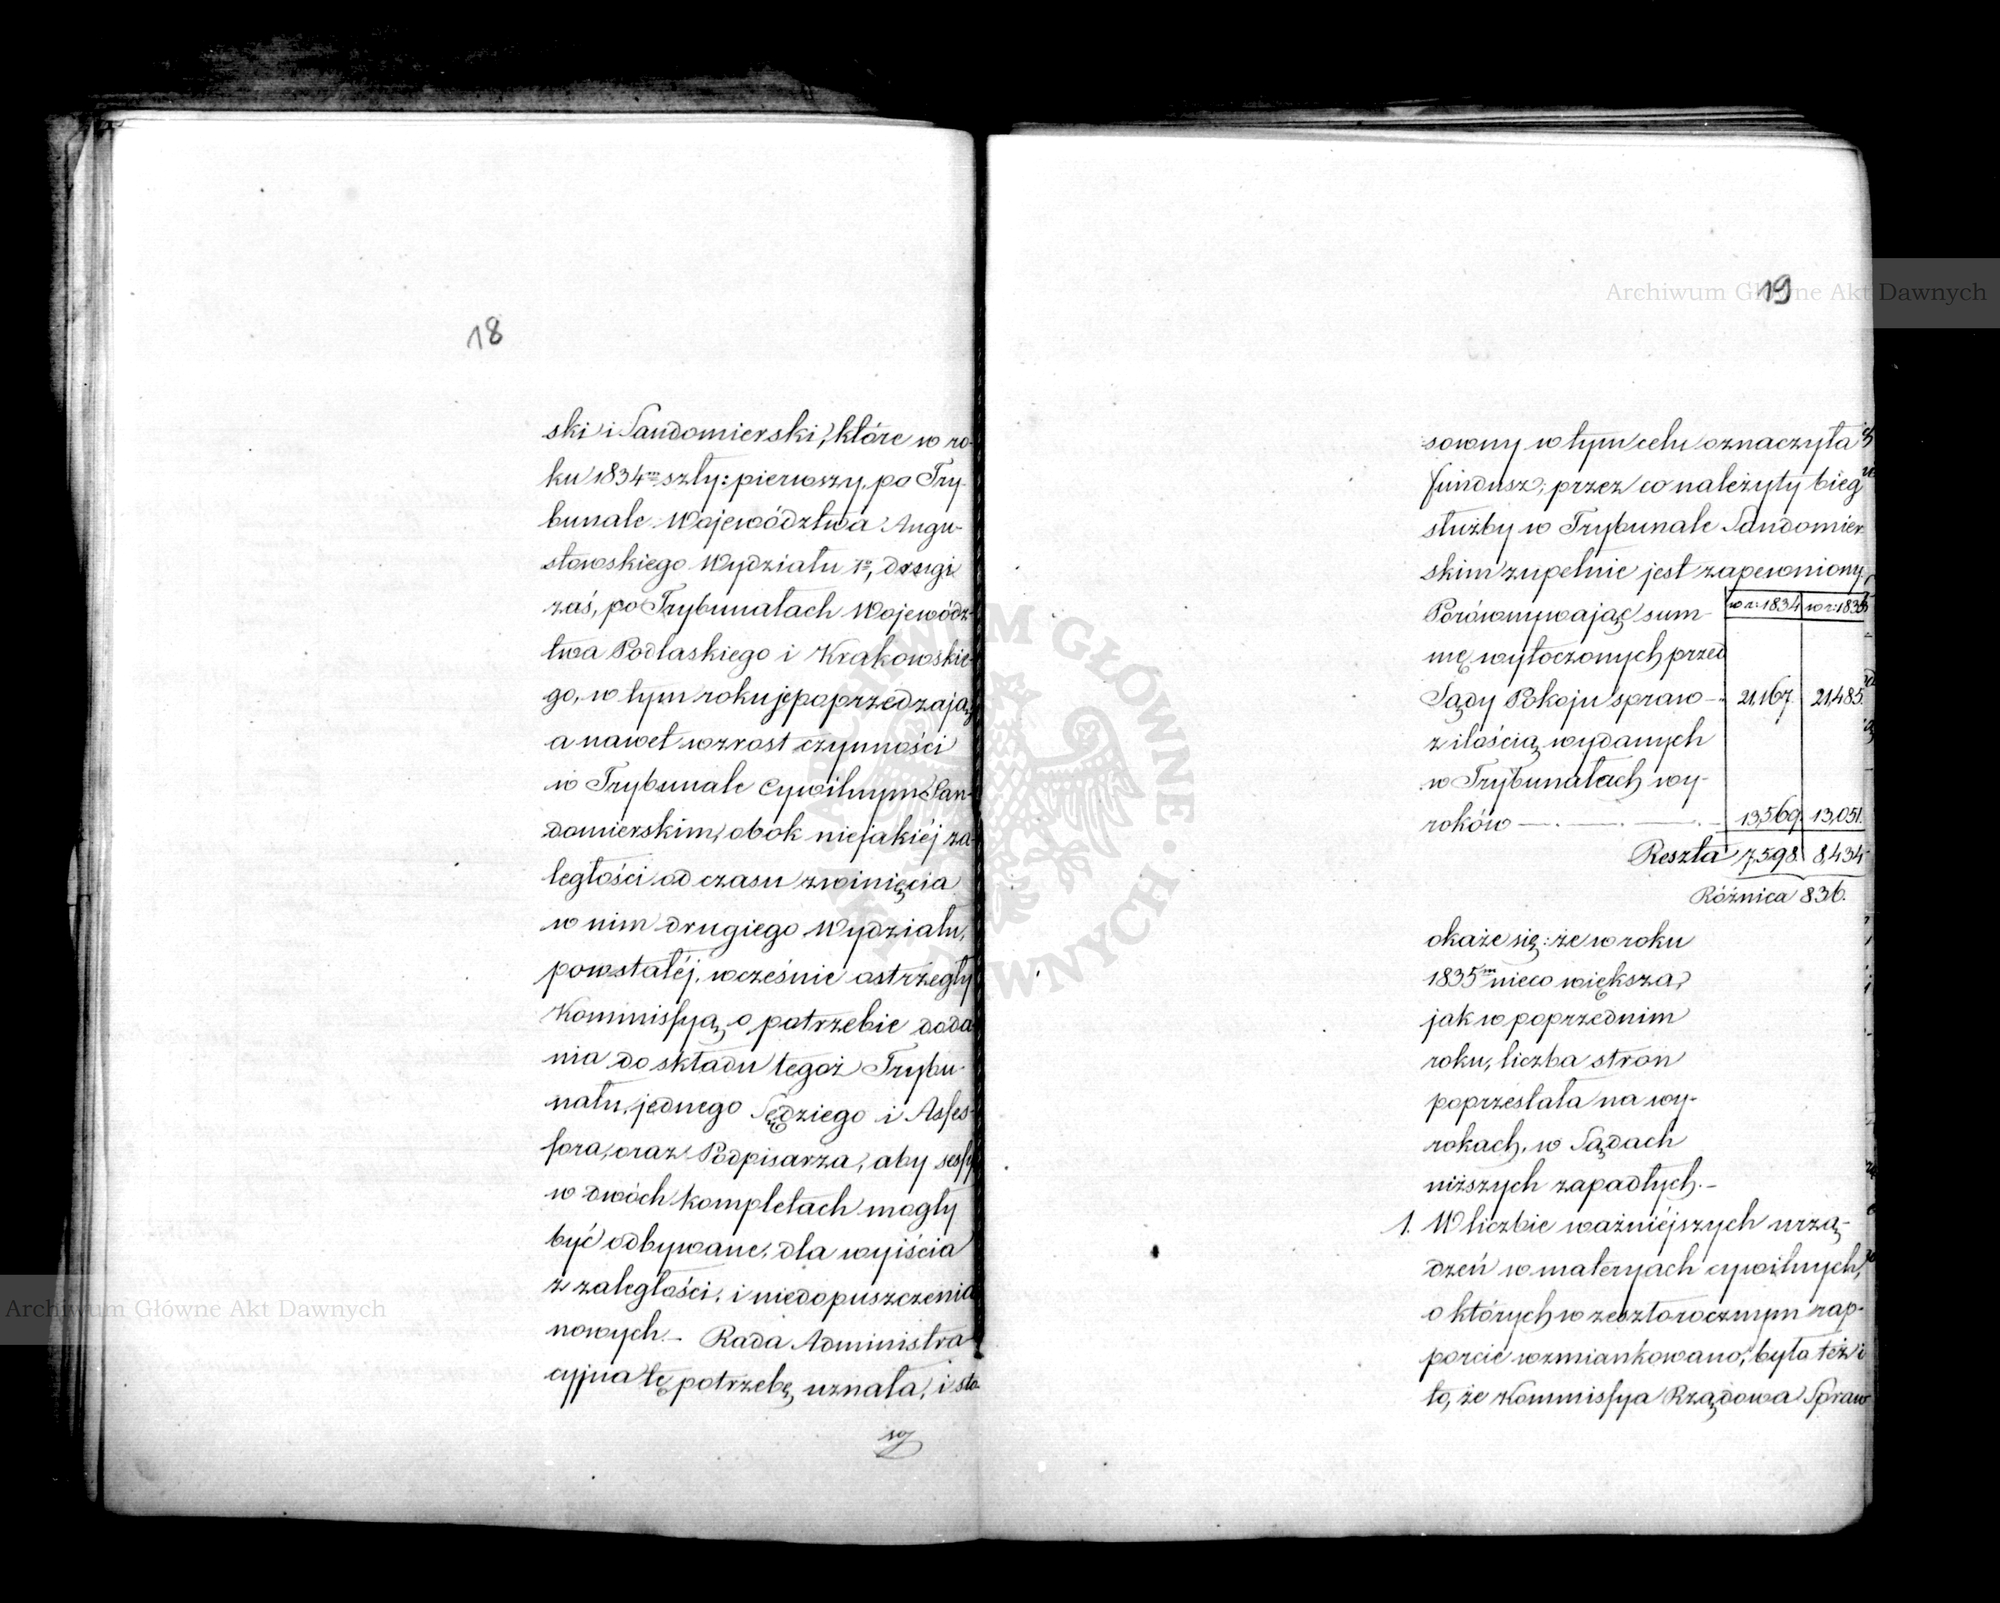 18
ski i Sandomierski, które w ro-
ku 1834m szły: pierwszy, po Try-
bunale Województwa Augu-
stowskiego Wydziału 1o, drugi
zaś, po Trybunałach Wojewódz-
twa Podlaskiego i Krakowskie-
go, w tym roku je poprzedzają,
a nawet wzrost czynności
w Trybunale Cywilnym San-
domierskim, obok niejakiéj za-
ległości od czasu zwinięcia
w nim drugiego Wydziału,
powstałéj, wcześnie ostrzegły
Kommissyą o potrzebie doda-
nia do składu tegoż Trybu-
nału, jednego Sędziego i Asses-
sora, oraz Podpisarza, aby sessye
w dwóch kompletach mogły
być odbywane, dla wyjścia
z zaległości, i niedopuszczenia
nowych.— Rada Administra-
cyjna tę potrzebę uznała, i sto-
19
sowny w tym celu oznaczyła
fundusz; przez co należyty bieg
służby w Trybunale Sandomier-
skim zupełnie jest zapewniony.
Porównywając sum- w r: 1834 w r: 1835
mę wytoczonych przed
Sądy Pokoju spraw — 21,167. 21,485.
z ilością wydanych
w Trybunałach wy-
roków — . — . — . — 13,569. 13,051.
Reszta 7,598. 8,434
Różnica 836.
okaże się: że w roku
1835m nieco większa,
jak w poprzednim
roku, liczba stron
poprzestała na wy-
rokach, w Sądach
niższych zapadłych.—
1. W liczbie ważniéjszych urzą-
dzeń w materyach cywilnych,
o których w zeszłorocznym rap-
porcie wzmiankowano, była też i
to, że Kommissya Rządowa Spraw
Archiwum Główne Akt Dawnych
Archiwum Główne Akt Dawnych
ARCHIWUM GŁÓWNE AKT DAWNYCH